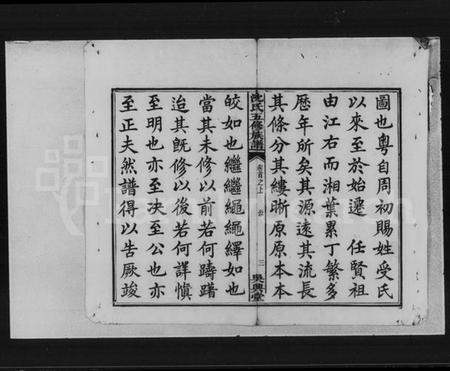 圖也粵自周初賜姓受氏
以來至於始遷　任賢祖
由江右而湘葉累丁繁多
歷年所矣其源遠其流長
其條分其縷晰原原本本
沈氏五修族譜
卷首之上
三
吳興堂
皎如也繼繼繩繩繹如也
當其未修以前若何躊躇
迨其既修以後若何詳慎
至明也亦至決至公也亦
至正夫然譜得以告厥竣